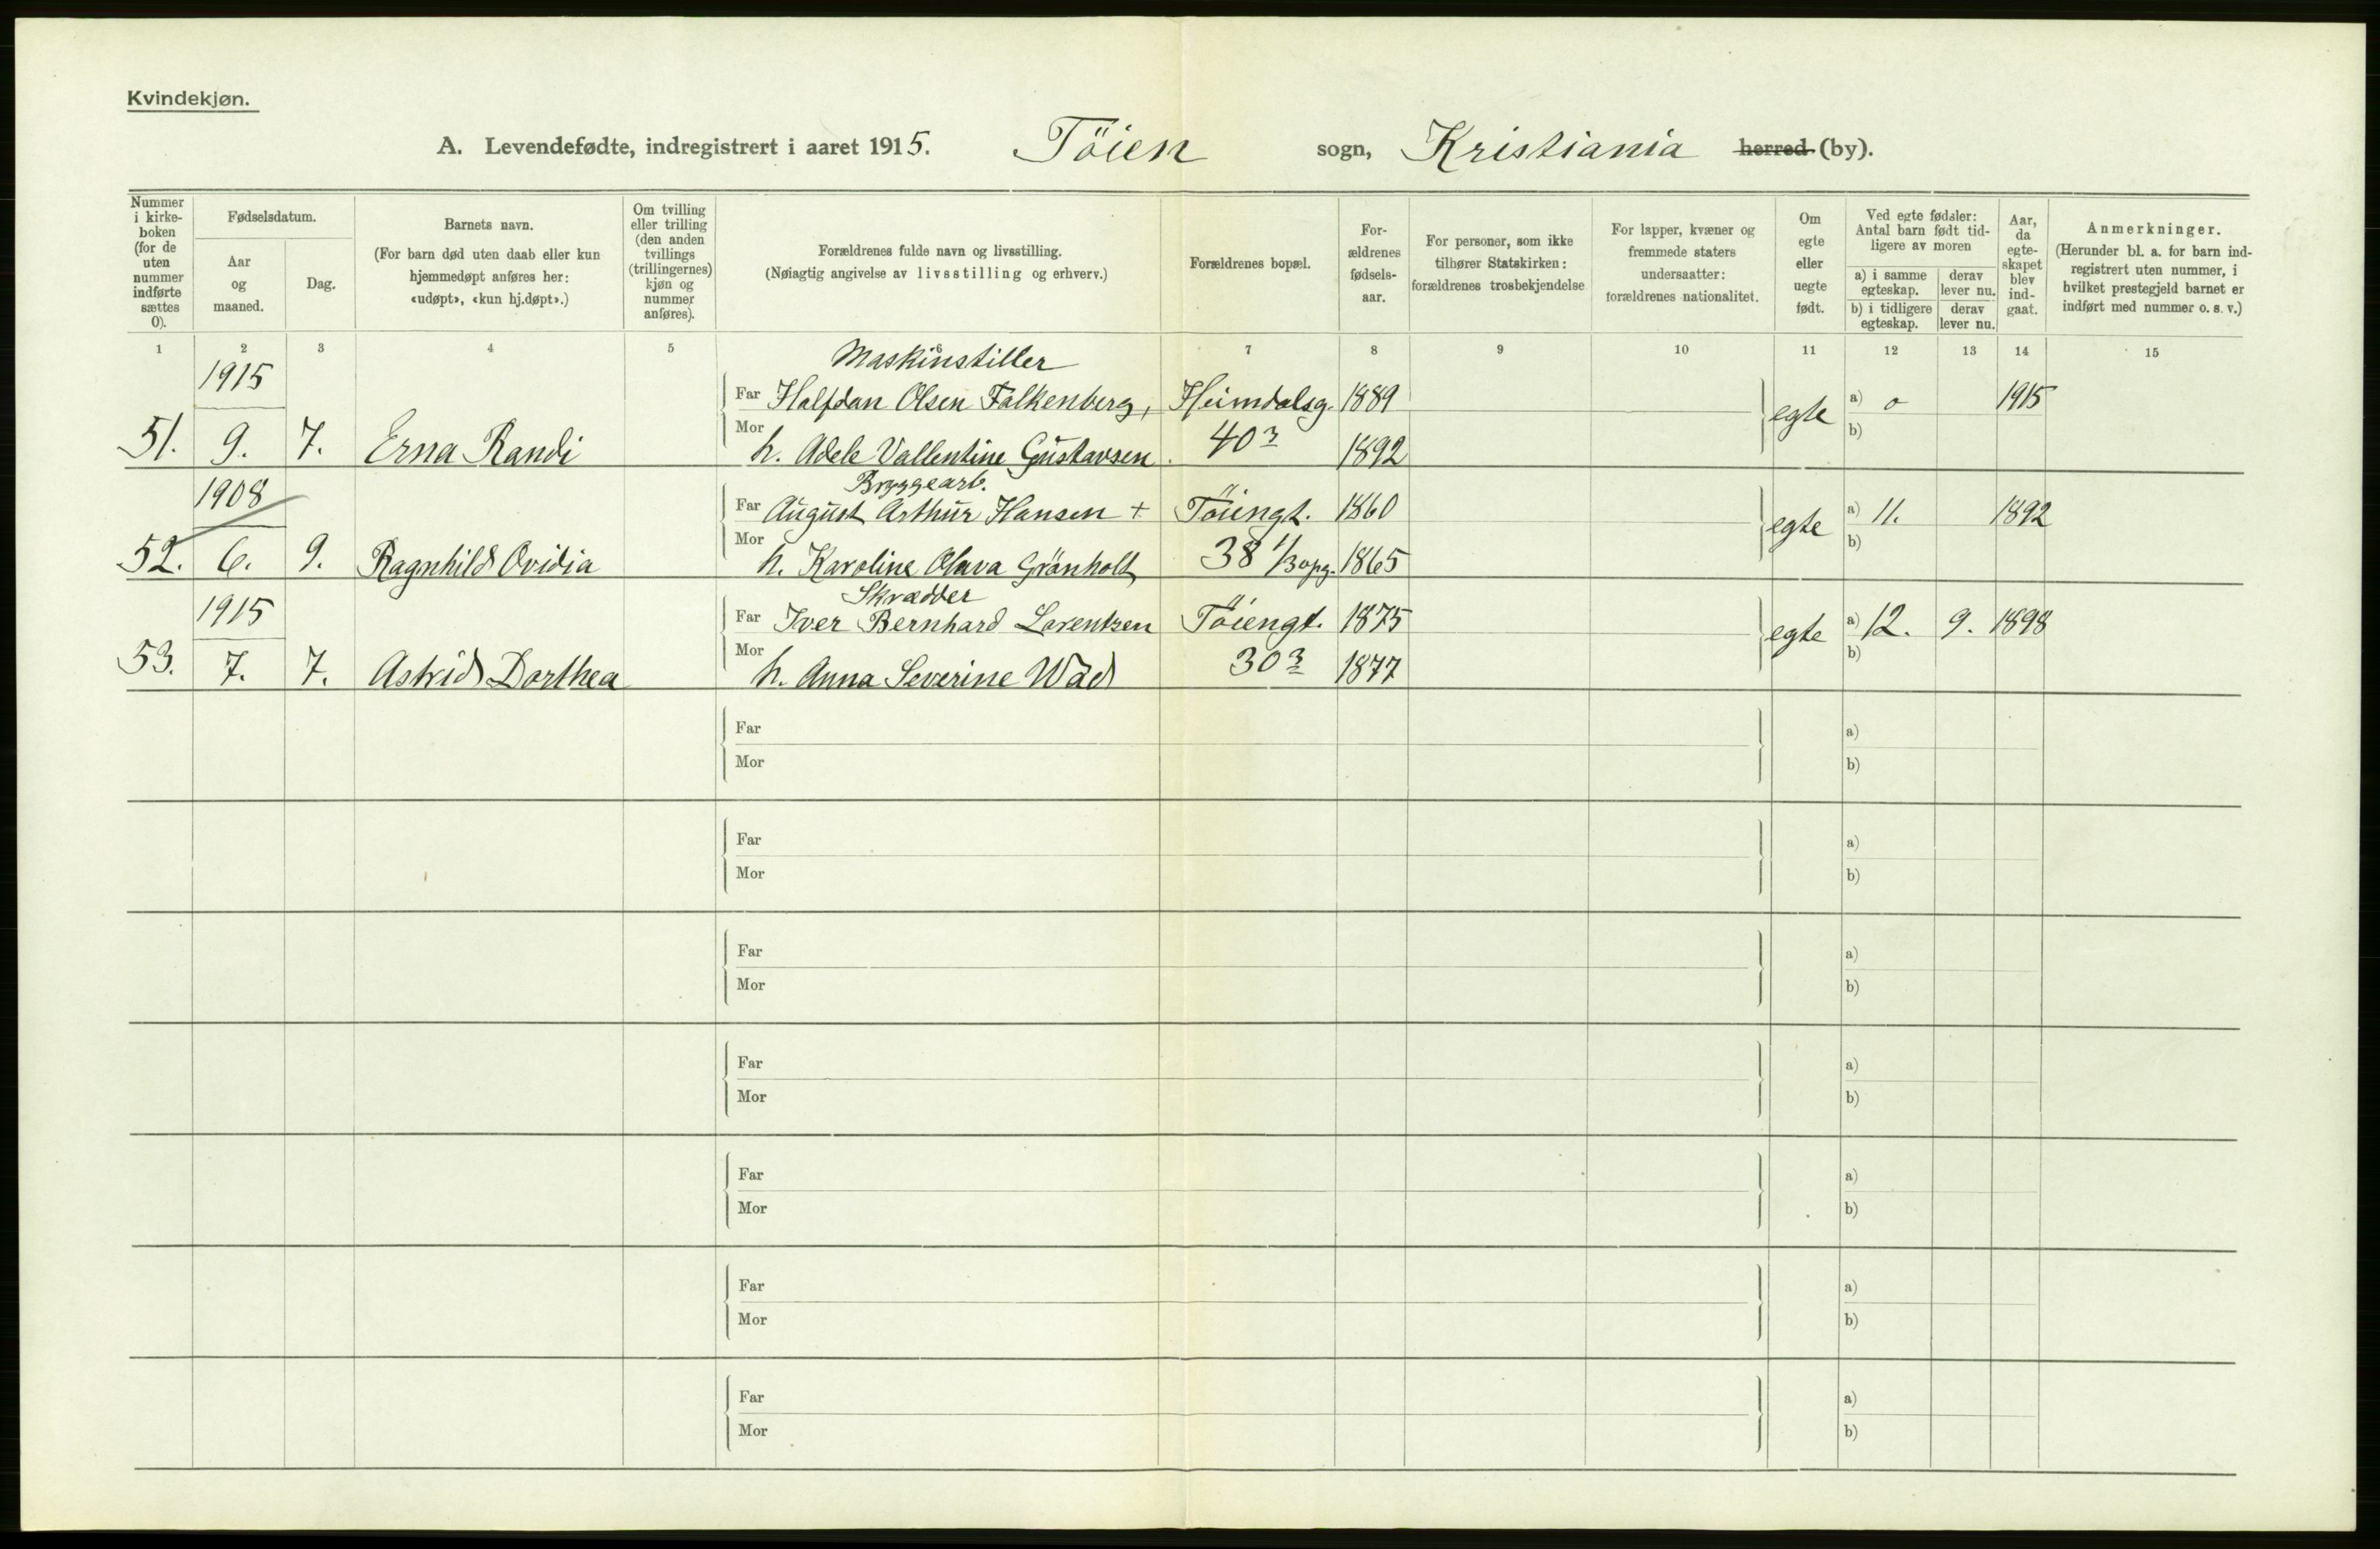 Kvindekjøn.
A. Levendefødte, indregistrert i aaret 1915. Töien sogn, Kristiania herred (by).
Nummer i kirke-boken (for de uten nummer indførte sættes 0).
Fødselsdatum.
Aar og maaned.
Dag.
Barnets navn.
(For barn død uten daab eller kun hjemmedøpt anføres her: «udøpt», «kun hj.døpt».)
Om tvilling eller trilling (den anden tvillings (trillingernes) kjøn og nummer anføres).
Forældrenes fulde navn og livsstilling.
(Nøiagtig angivelse av livsstilling og erhverv.)
Forældrenes bopæl.
For-ældrenes fødsels-aar.
For personer, som ikke tilhører Statskirken: forældrenes trosbekjendelse
For lapper, kvæner og fremmede staters undersaatter: forældrenes nationalitet.
Om egte eller uegte født.
Ved egte fødsler: Antal barn født tid-ligere av moren
a) i samme egteskap.
derav lever nu.
b) i tidligere egteskap.
derav lever nu.
Aar, da egte-skapet blev ind-gaat.
Anmerkninger.
(Herunder bl. a. for barn ind-registrert uten nummer, i hvilket prestegjeld barnet er indført med nummer o. s. v.)
1 2 3 4 5 6 7 8 9 10 11 12 13 14 15
1915 Maskinstiller
Far Halfdan Olsen Falkenberg, Heimdalsg. 1889 egte a) 0 1915
51. 9. 7. Erna Randi Mor h. Adele Vallentine Gustavsen. 40 3 1892 b)
1908 Bryggearb.
Far August Arthur Hansen + Töiengt. 1860 egte a) 11. 1892
52. 6. 9. Ragnhild Ovidia Mor h. Karoline Olava Grönholt 38 1/3 opg. 1865 b)
1915 Skrædder
Far Iver Bernhard Lorentzen Töiengt. 1875 egte a) 12. 9. 1898
53. 7. 7. Astrid Dorthea Mor h. Anna Severine Wad 30 3 1877 b)
Far a)
Mor b)
Far a)
Mor b)
Far a)
Mor b)
Far a)
Mor b)
Far a)
Mor b)
Far a)
Mor b)
Far a)
Mor b)